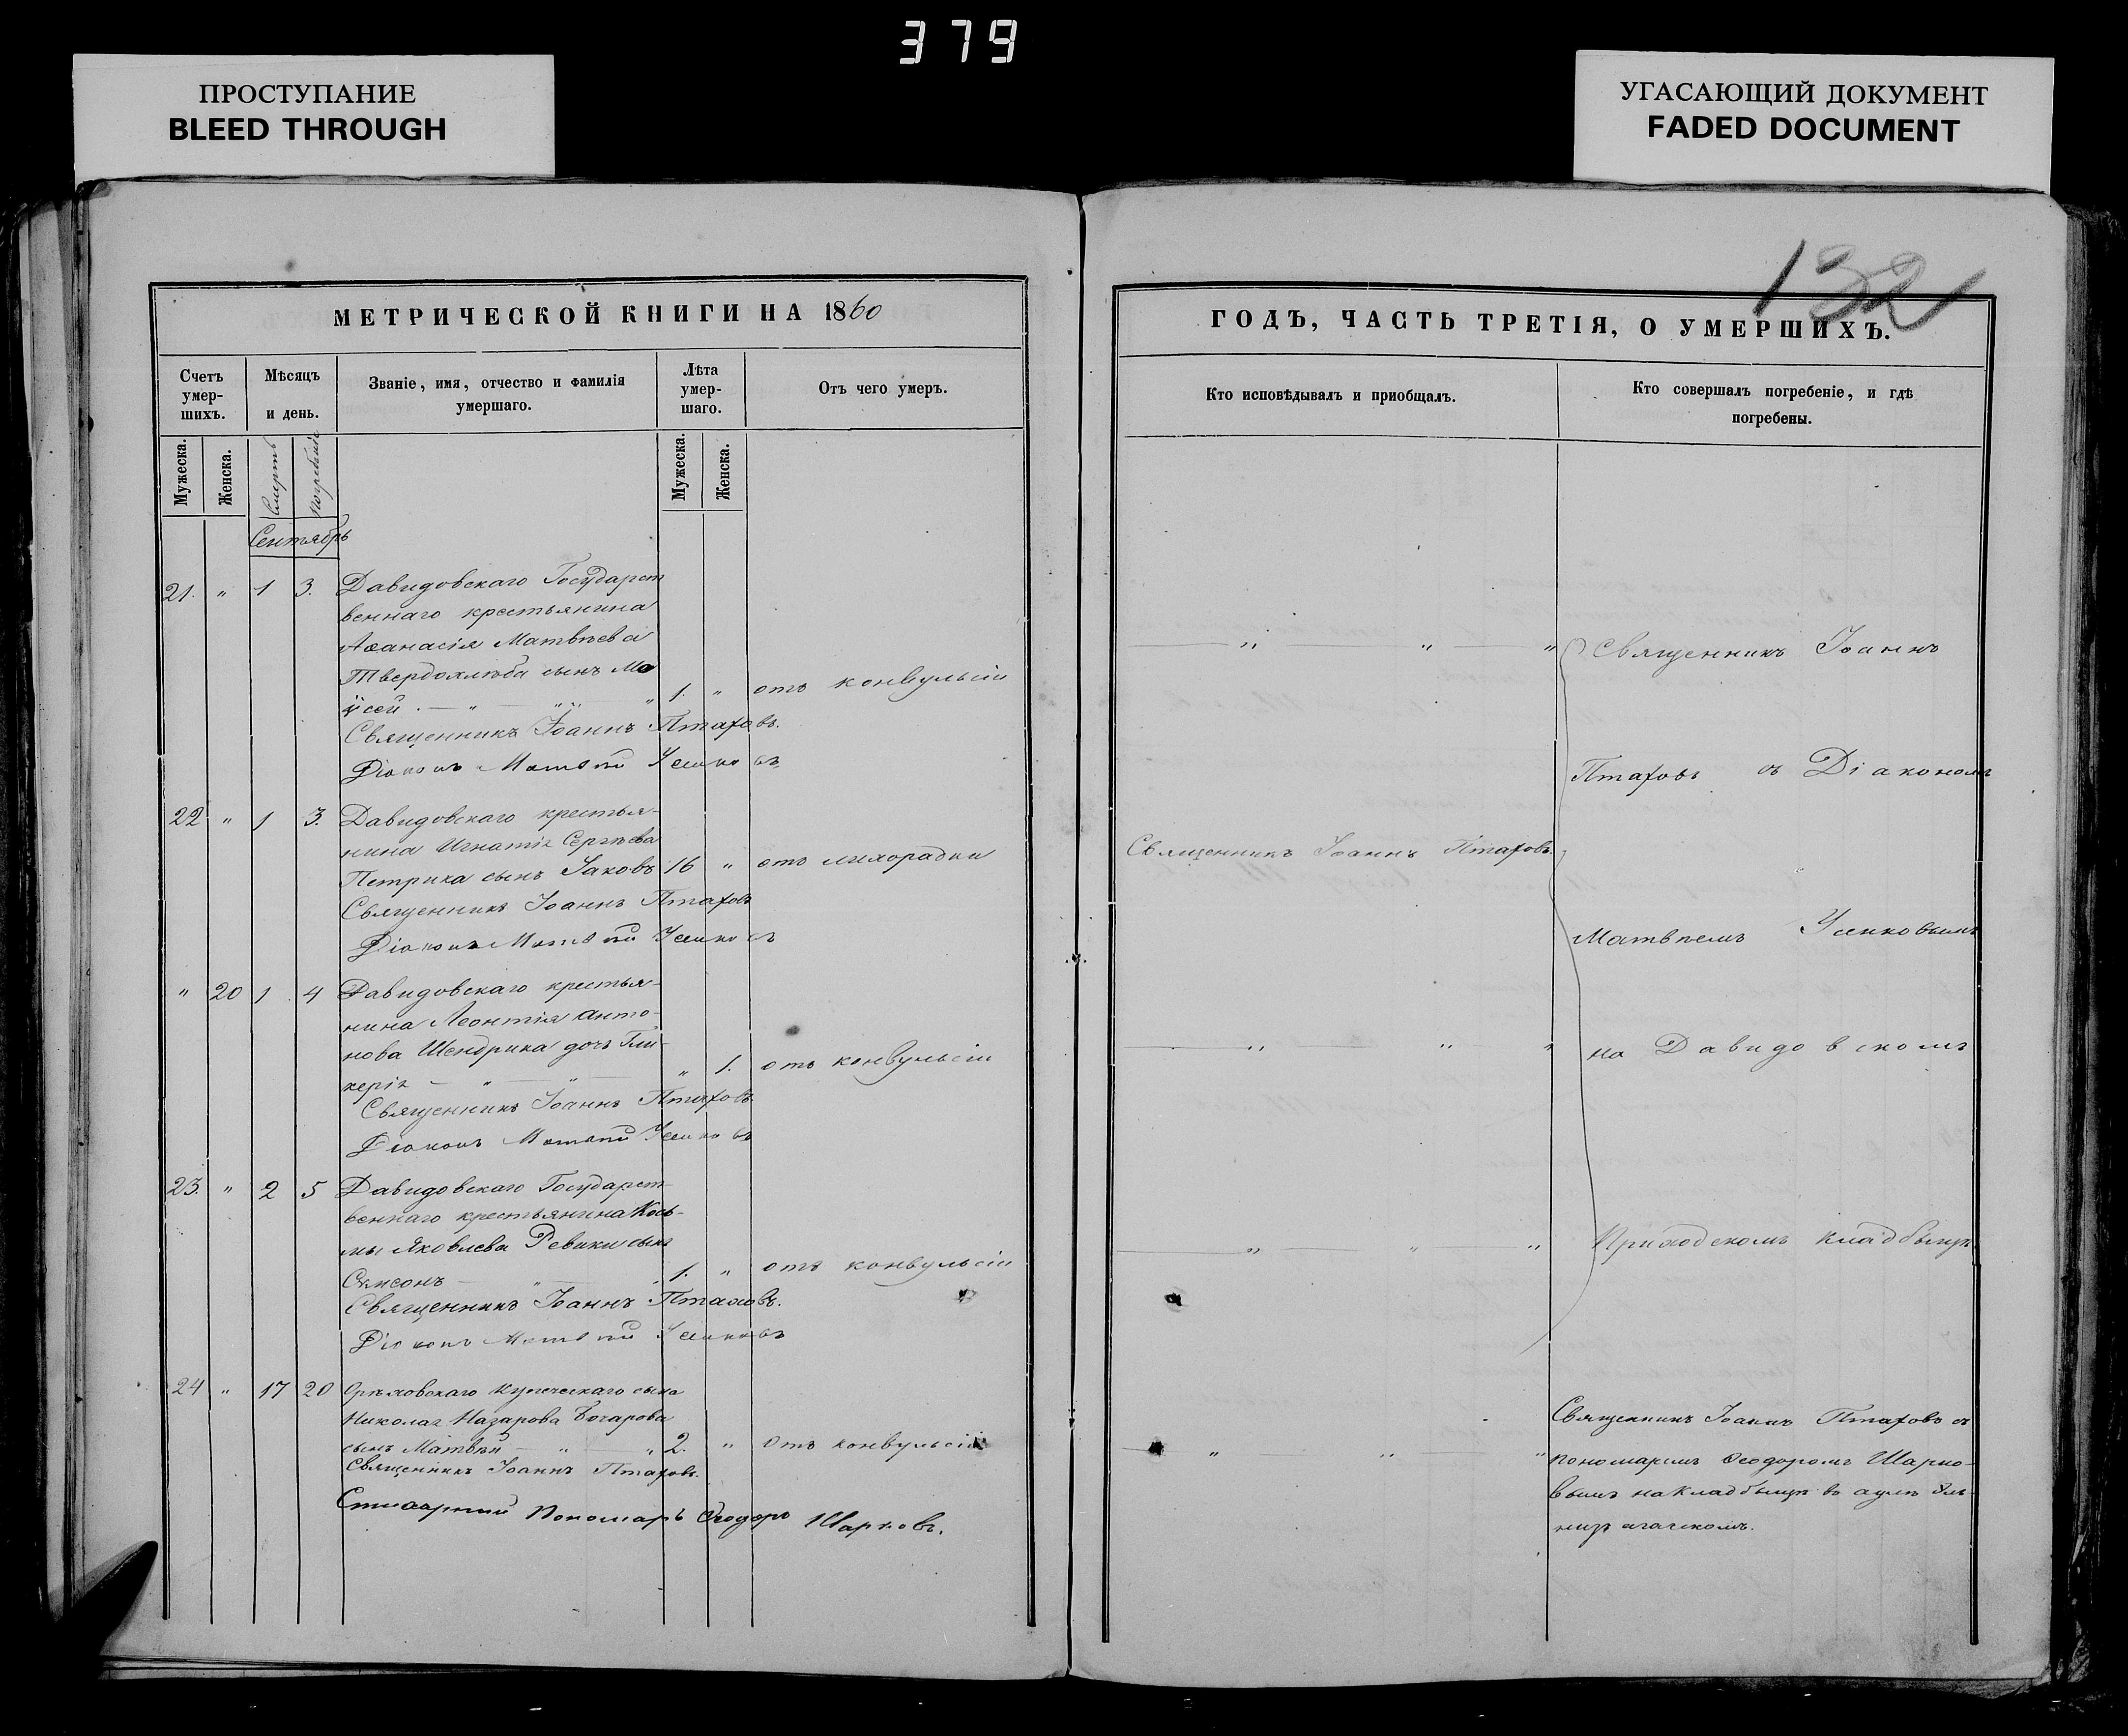 379
ПРОСТУПАНИЕ
BLEED THROUGH
УГАСАЮЩИЙ ДОКУМЕНТ
FADED DOCUMENT
132
МЕТРИЧЕСКОЙ КНИГИ НА 1860
Счетъ умер-шихъ.
Мѣсяцъ и день.
Званіе, имя, отчество и фамилія умершаго.
Лѣта умер-шаго.
Отъ чего умеръ.
Мужеска.
Женска.
Смерть
Погребенія
Мужеска.
Женска.
Сентябрь
21. " 1 3. Давидовскаго Государст
веннаго крестьянина
Аѳанасія Матвѣева
Твердохлѣба сынъ Мо
ѵсей " " " 1. " отъ конвульсіи
Священникъ Іоаннъ Птаховъ.
Діаконъ Матвѣй Усиковъ
22 " 1 3. Давидовскаго крестья-
нина Игнатія Сергѣева
Петрика сынъ Іаковъ 16 " отъ лихорадки
Священникъ Іоаннъ Птаховъ
Діаконъ Матвѣй Усиковъ
" 20 1 4 Давидовскаго крестья-
нина Леонтія Анто-
нова Шендрика дочь Гли-
керія " " " 1. отъ конвульсіи
Священникъ Іоаннъ Птаховъ.
Діаконъ Матвѣй Усиковъ
23. " 2 5 Давидовскаго Государст-
веннаго крестьянина Кось-
мы Яковлева Ревики сынъ
Самсонъ " 1. " отъ конвульсіи
Священникъ Іоаннъ Птаховъ.
Діаконъ Матвѣй Усиковъ
24 " 17 20 Орѣховскаго купеческаго сына
Николая Назарова Бочарова
сынъ Матвѣй " " 2. " Отъ конвульсіи
Священникъ Іоаннъ Птаховъ.
Стихарный Пономарь Ѳеодоръ Шарковъ.
ГОДЪ, ЧАСТЬ ТРЕТІЯ, О УМЕРШИХЪ.
Кто исповѣдывалъ и приобщалъ.
Кто совершалъ погребеніе, и гдѣ
погребены.
" " " Священникъ Іоаннъ
Птаховъ съ Діакономъ
Священникъ Іоаннъ Птаховъ.
Матвѣемъ Усиковымъ
" " " на Давидовскомъ
" " " Приходскомъ кладбищѣ
Священникъ Іоаннъ Птаховъ съ
" " " пономаремъ Ѳеодоромъ Шарко-
вымъ на кладбищѣ въ аулѣ